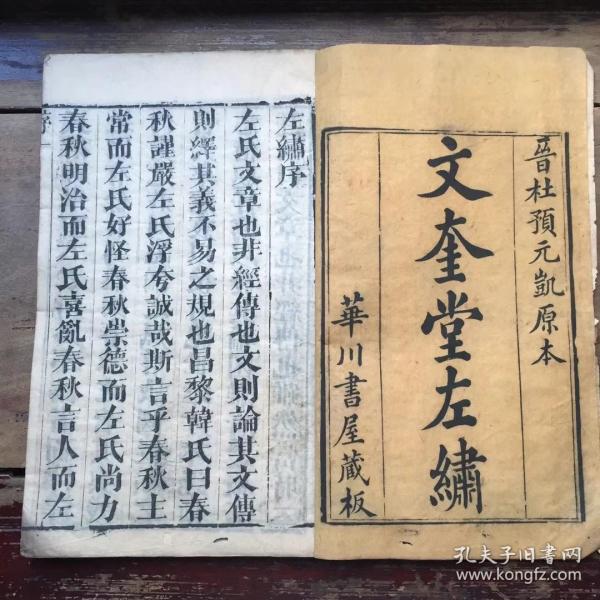 晉杜預元凱原本
文奎堂左繡
華川書屋藏板
左繡序
左氏文章也非經傳也文則論其文傳
則繹其義不易之規也昌黎韓氏曰春
秋謹嚴左氏浮夸誠哉斯言乎春秋主
常而左氏好怪春秋崇德而左氏尚力
春秋明治而左氏喜亂春秋言人而左
序
孔夫子旧书网
www.kongfz.com